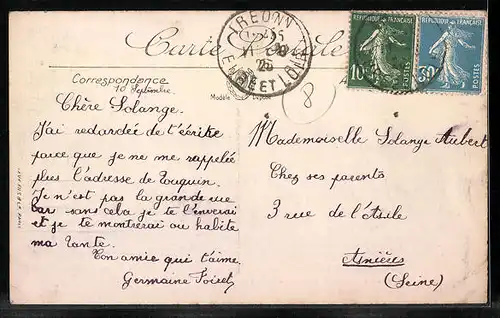 Carte Postale
Correspondance
10 Septembre
Chère Solange.
J'ai retardée de t'écrire
parce que je ne me rappelée
plus l'adresse de Touquin.
Je n'est pas la grande vue
car sans cela je te l'enverai
et je te montrerai ou habite
ma tante.
Ton amie qui t'aime.
Germaine
Modèle Déposé
TREON
11 25
EURE ET LOIR
REPUBLIQUE FRANÇAISE
10c
POSTES
REPUBLIQUE FRANÇAISE
30c
POSTES
8
Mademoiselle Solange Aubert
Chez ses parents
3 rue de l'Asile
Asnières
(Seine)